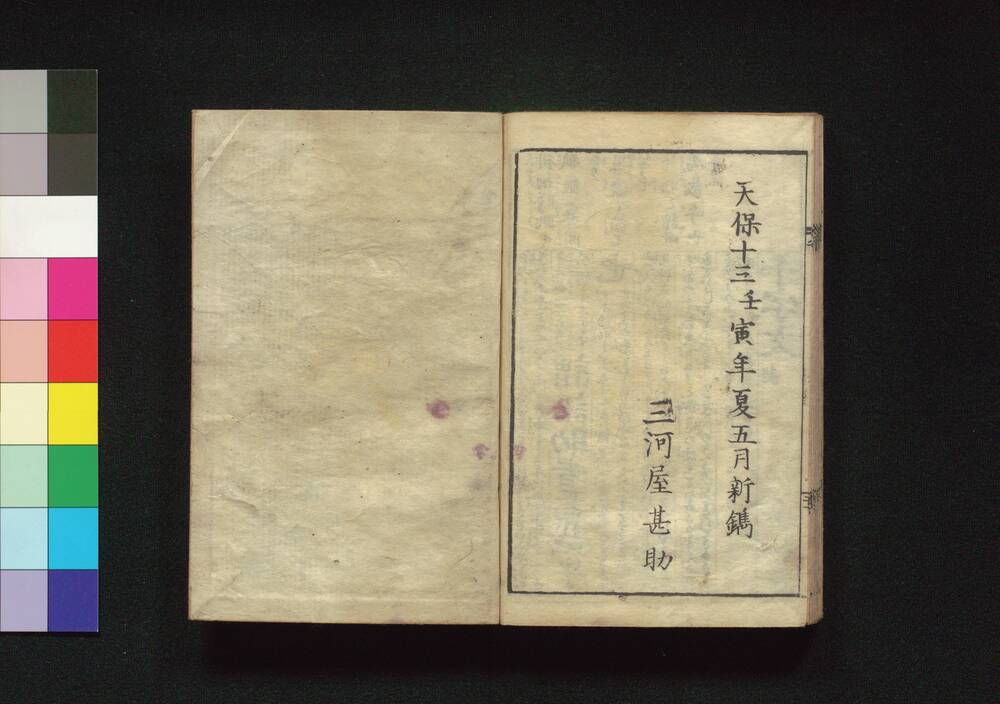 天保十三壬寅年夏五月新鐫
三河屋甚助